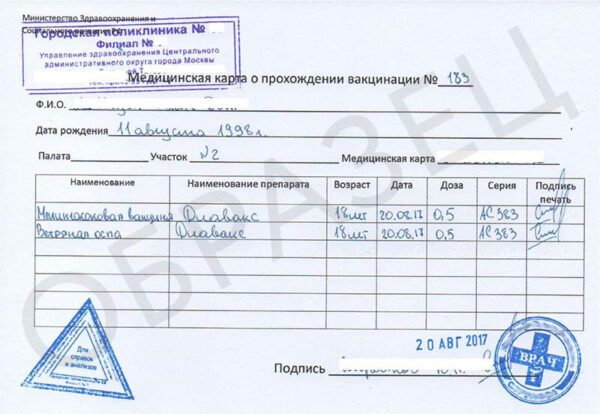 Министерство Здравоохранения и
Социального развития РФ
Городская поликлиника №
Филиал №
Управление здравоохранения Центрального
административного округа города Москвы
Медицинская карта о прохождении вакцинации № 183
Ф.И.О.
Дата рождения 11 августа 1998г.
Палата Участок №2 Медицинская карта
Наименование Наименование препарата Возраст Дата Доза Серия Подпись печать
Менингококовая вакцина Диавакс 18 лет 20.08.17 0,5 АС383
Ветряная оспа Диавакс 18 лет 20.08.17 0,5 АС383
ОБРАЗЕЦ
Для
справок
и анализов
20 АВГ 2017
ВРАЧ
Подпись